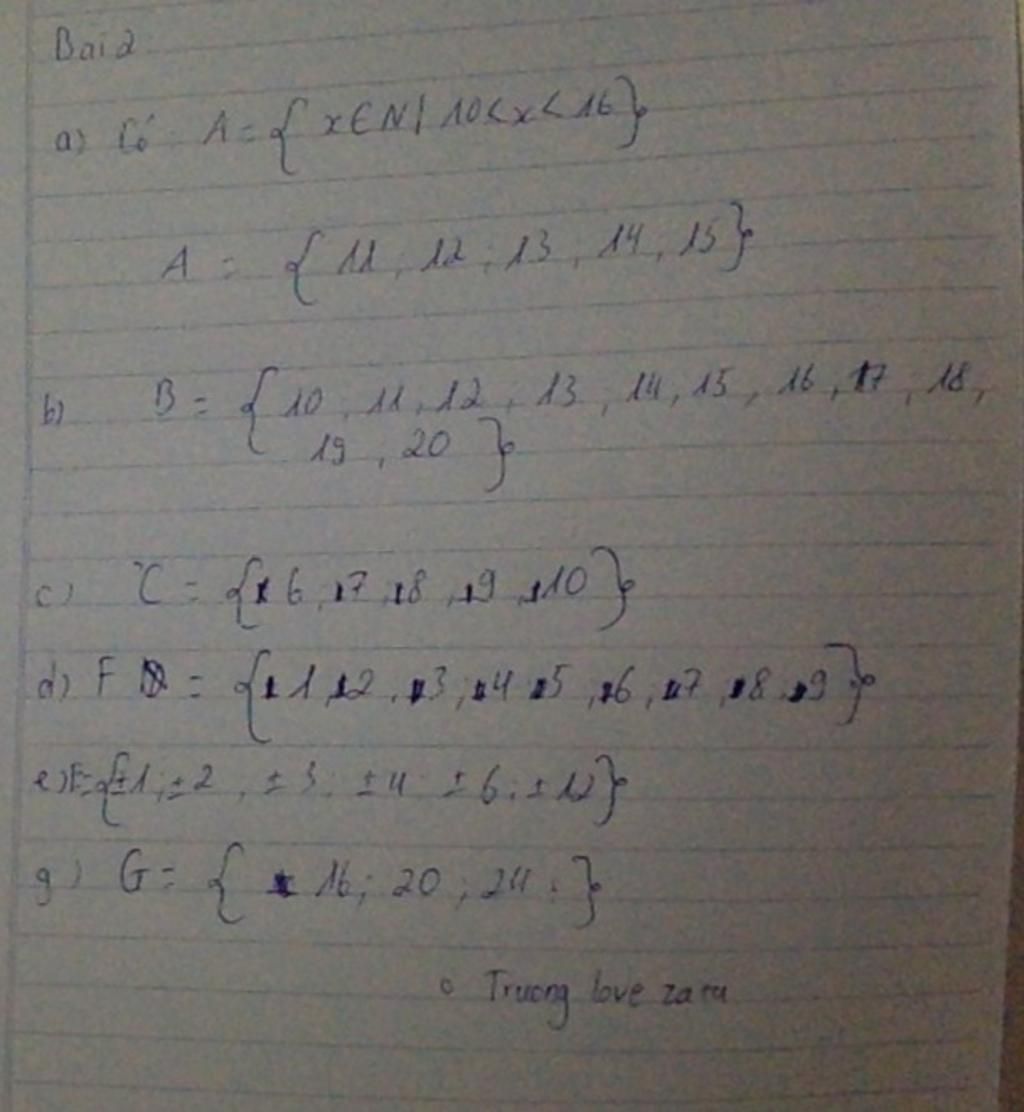 Bai 2
a) Có A = { x ∈ N | 10 < x < 16 }
A = { 11 ; 12 ; 13 ; 14 , 15 }
b) B = { 10 , 11 , 12 , 13 , 14 , 15 , 16 , 17 , 18 ,
19 , 20 }
c) C = { 6 , 7 , 8 , 9 , 10 }
d) F = { 1 , 2 , 3 , 4 , 5 , 6 , 7 , 8 , 9 }
e) F = { ±1 ; ±2 , ±3 ; ±4 ; ±6 ; ±12 }
g) G = { 16 ; 20 ; 24 ; }
Truong love zara